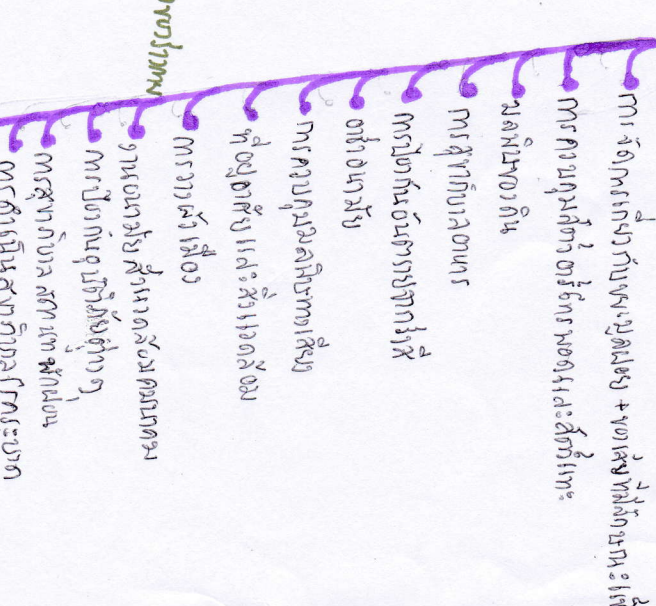 การจัดการเกี่ยวกับขยะมูลฝอย + ของเสียที่มีลักษณะ
การควบคุมสัตว์อาร์โทรพอดและสัตว์แทะ
มลพิษของดิน
การสุขาภิบาลอาหาร
การป้องกันอันตรายจากรังสี
อาชีวอนามัย
การควบคุมมลพิษทางเสียง
ที่อยู่อาศัยและสิ่งแวดล้อม
การวางผังเมือง
งานอนามัยสิ่งแวดล้อมคมนาคม
การป้องกันอุบัติภัยต่างๆ
การสุขาภิบาลสถานที่พักผ่อน
การดำเนินสุขาภิบาล